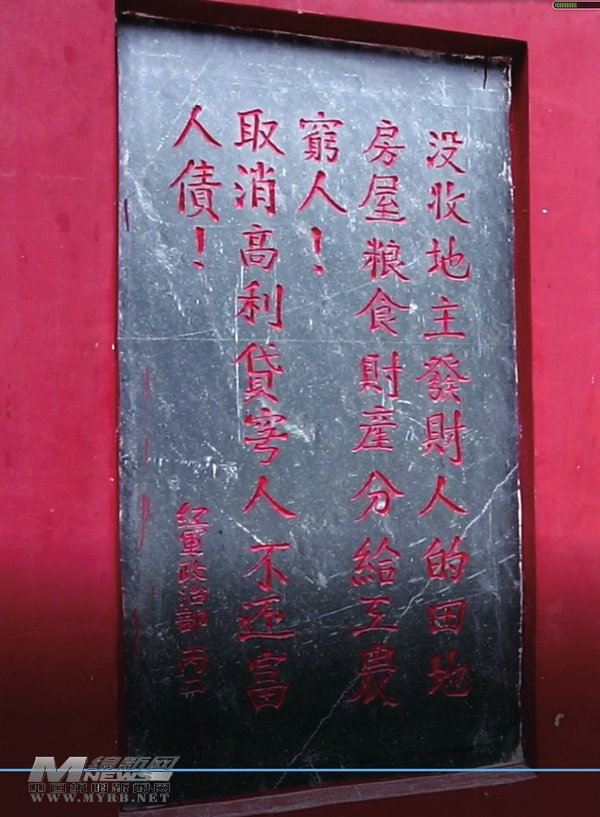 没收地主發財人的田地
房屋粮食財產分給工農
窮人！
取消高利貸穷人不还富
人債！
红軍政治部 丙二
MNEWS 绵新网
中国绵阳新闻网
WWW.MYRB.NET